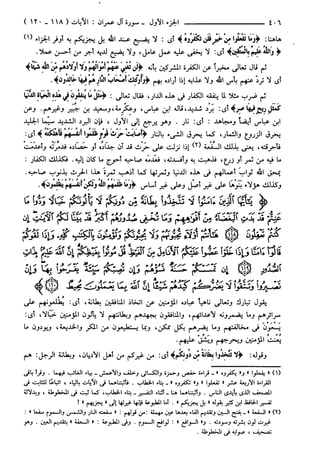 ٤٠٦ الجزء الأول - سورة آل عمران : الآيات ( ١١٨ - ١٢٠ )
هاهنا: ﴿وَمَا تَفْعَلُوا مِنْ خَيْرٍ فَلَنْ تُكْفَرُوهُ﴾ أي : لا يضيع عند الله بل يجزيكم به أوفر الجزاء (١)
﴿وَاللَّهُ عَلِيمٌ بِالْمُتَّقِينَ﴾ أي : لا يخفى عليه عمل عامل، ولا يضيع لديه أجر من أحسن عملا.
ثم قال تعالى مخبراً عن الكفرة المشركين بأنه ﴿لَنْ تُغْنِيَ عَنْهُمْ أَمْوَالُهُمْ وَلَا أَوْلَادُهُمْ مِنَ اللَّهِ شَيْئًا﴾
أي لا تردّ عنهم بأس الله ولا عذابه إذا أراده بهم ﴿وَأُولَئِكَ أَصْحَابُ النَّارِ هُمْ فِيهَا خَالِدُونَ﴾.
ثم ضرب مثلا لما ينفقه الكفار في هذه الدار، فقال تعالى : ﴿مَثَلُ مَا يُنْفِقُونَ فِي هَذِهِ الْحَيَاةِ الدُّنْيَا
كَمَثَلِ رِيحٍ فِيهَا صِرٌّ﴾ أي: برد شديد، قاله ابن عباس، وعكرمة، وسعيد بن جبير وغيرهم. وعن
ابن عباس أيضاً ومجاهد : أي: نار . وهو يرجع إلى الأول ، فإن البرد الشديد سيّما الجليد
يحرق الزروع والثمار، كما يحرق الشيء بالنار ﴿أَصَابَتْ حَرْثَ قَوْمٍ ظَلَمُوا أَنْفُسَهُمْ فَأَهْلَكَتْهُ﴾ أي:
فأحرقته، يعني بذلك السَّفْعة (٢) إذا نزلت على حرث قد آن جذاذُه أو حَصاده، فدمرته وأعدمت
ما فيه من ثمر أو زرع، فذهبت به وأفسدته، فعُدمَه صاحبه أحوج ما كان إليه. فكذلك الكفار :
يمحق الله ثواب أعمالهم في هذه الدنيا وثمرتها كما أذهب ثمرة هذا الحرث بذنوب صاحبه.
وكذلك هؤلاء بَنَوْها على غير أصل وعلى غير أساس ﴿وَمَا ظَلَمَهُمُ اللَّهُ وَلَكِنْ أَنْفُسَهُمْ يَظْلِمُونَ﴾.
﴿يَا أَيُّهَا الَّذِينَ آمَنُوا لَا تَتَّخِذُوا بِطَانَةً مِنْ دُونِكُمْ لَا يَأْلُونَكُمْ خَبَالًا وَدُّوا مَا
عَنِتُّمْ قَدْ بَدَتِ الْبَغْضَاءُ مِنْ أَفْوَاهِهِمْ وَمَا تُخْفِي صُدُورُهُمْ أَكْبَرُ قَدْ بَيَّنَّا لَكُمُ الْآيَاتِ
إِنْ كُنْتُمْ تَعْقِلُونَ هَا أَنْتُمْ أُولَاءِ تُحِبُّونَهُمْ وَلَا يُحِبُّونَكُمْ وَتُؤْمِنُونَ بِالْكِتَابِ كُلِّهِ وَإِذَا لَقُوكُمْ
قَالُوا آمَنَّا وَإِذَا خَلَوْا عَضُّوا عَلَيْكُمُ الْأَنَامِلَ مِنَ الْغَيْظِ قُلْ مُوتُوا بِغَيْظِكُمْ إِنَّ اللَّهَ عَلِيمٌ بِذَاتِ
الصُّدُورِ إِنْ تَمْسَسْكُمْ حَسَنَةٌ تَسُؤْهُمْ وَإِنْ تُصِبْكُمْ سَيِّئَةٌ يَفْرَحُوا بِهَا وَإِنْ تَصْبِرُوا
وَتَتَّقُوا لَا يَضُرُّكُمْ كَيْدُهُمْ شَيْئًا إِنَّ اللَّهَ بِمَا يَعْمَلُونَ مُحِيطٌ﴾
يقول تبارك وتعالى ناهياً عباده المؤمنين عن اتخاذ المنافقين بطانة، أي: يُطلعونهم على
سرائرهم وما يضمرونه لأعدائهم، والمنافقون بجهدهم وطاقتهم لا يألون المؤمنين خَبالا، أي:
يسعَوْنَ في مخالفتهم وما يضرهم بكل ممكن، وبما يستطيعون من المكر والخديعة، ويودون ما
يُعْنتُ المؤمنين ويحرجهم ويَشُقّ عليهم.
وقوله: ﴿لَا تَتَّخِذُوا بِطَانَةً مِنْ دُونِكُمْ﴾ أي: من غيركم من أهل الأديان، وبطانة الرجل: هم
(١) «يفعلوا» و«يكفروه» - قراءة حفص وحمزة والكسائي وخلف والأعمش - بياء الغائب فيهما. وقرأ باقي
القراءات الأربعة عشر «تفعلوا» و«تكفروه» - بتاء الخطاب.
(٢) السفعة -